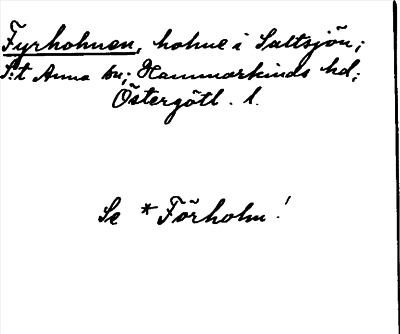 Fyrholmen, holme i Saltsjön;
S:t Anna sn; Hammarkinds hd;
Östergötl. l.
Se *Förholm!